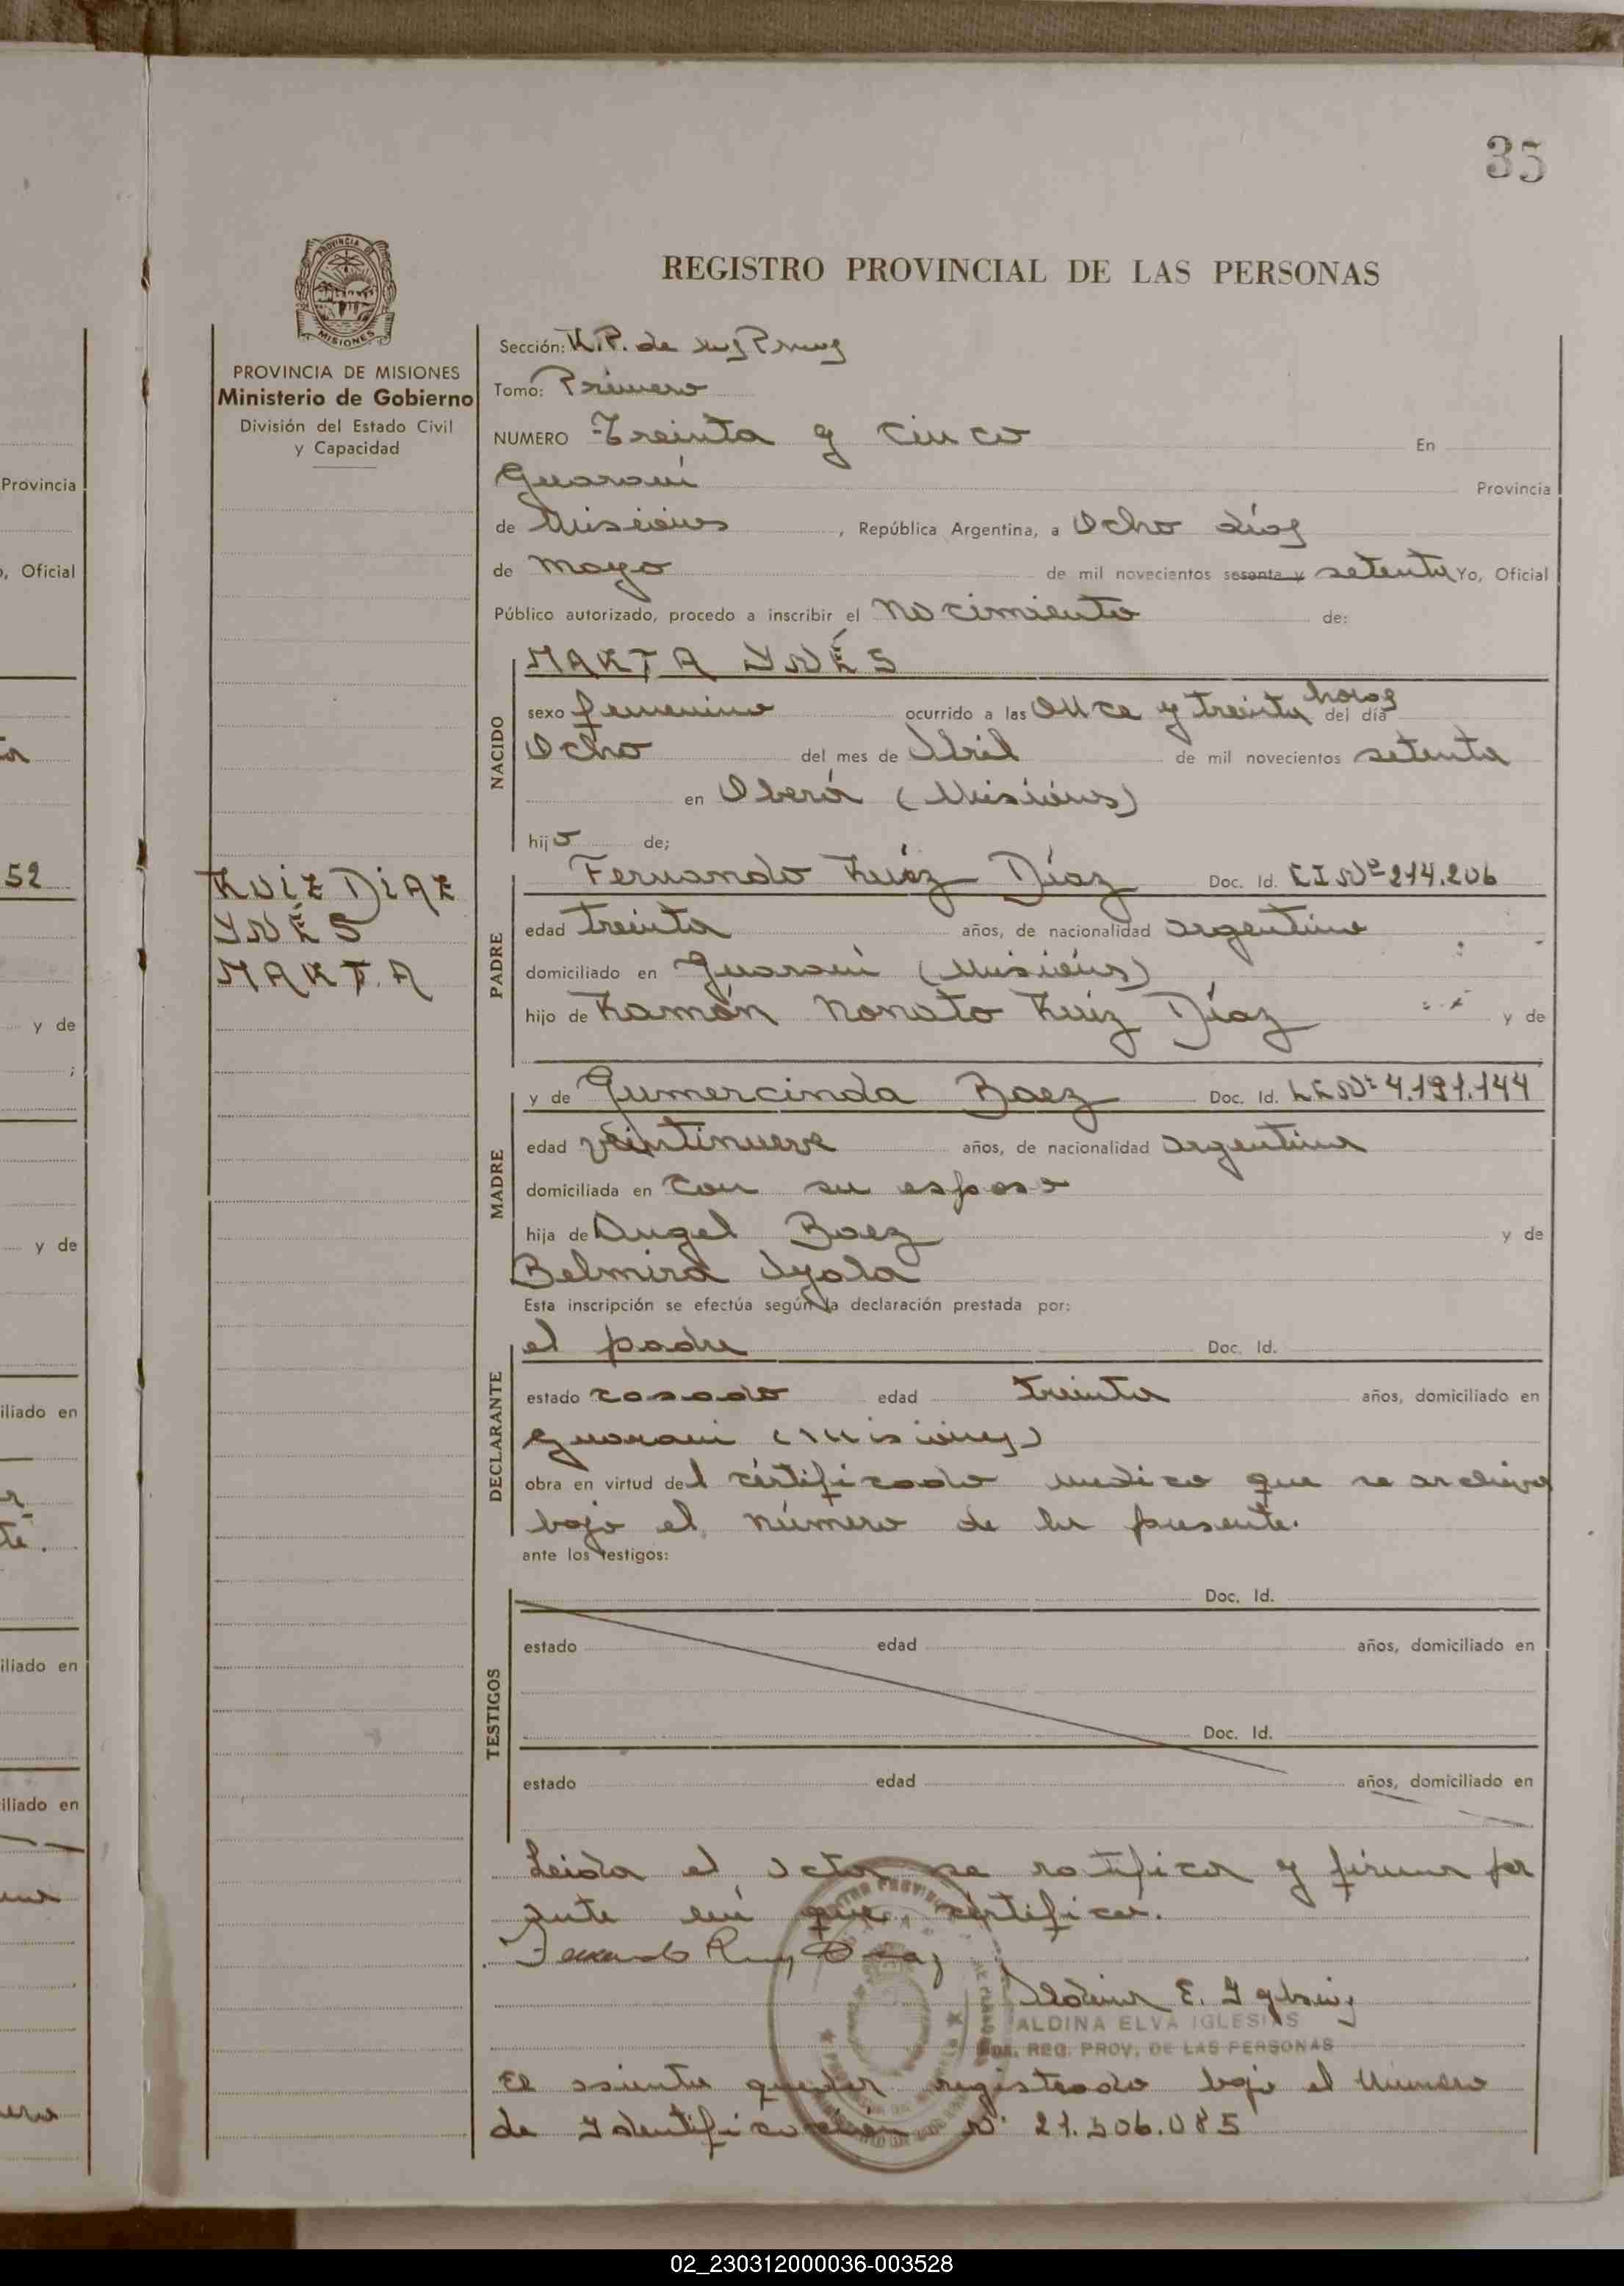 35
PROVINCIA DE MISIONES
REGISTRO PROVINCIAL DE LAS PERSONAS
PROVINCIA DE MISIONES
Ministerio de Gobierno
División del Estado Civil
y Capacidad
Sección: R.P. de las
Tomo: Primero
NUMERO Treinta y cinco En
Guaraní Provincia
de Misiones, República Argentina, a Ocho días
de Mayo de mil novecientos sesenta y setenta Yo, Oficial
Público autorizado, procedo a inscribir el Nacimiento de:
MARTA YNÉS
NACIDO
sexo femenino ocurrido a las Once y treinta horas del día
Ocho del mes de Abril de mil novecientos setenta
en Oberá (Misiones)
hijo de;
RUIZ DIAZ
YNÉS
MARTA
PADRE
Fernando Ruiz Díaz Doc. Id. CI Nº 214.206
edad treinta años, de nacionalidad argentino
domiciliado en Guaraní (Misiones)
hijo de Ramón Nonato Ruiz Díaz y de
MADRE
y de Gumercinda Baez Doc. Id. LC Nº 4.191.144
edad veintinueve años, de nacionalidad argentina
domiciliada en con su esposo
hija de Angel Baez y de
Belmira Ayala
Esta inscripción se efectúa según la declaración prestada por:
DECLARANTE
el padre Doc. Id.
estado casado edad treinta años, domiciliado en
Guaraní (Misiones)
obra en virtud del certificado medico que se archiva
bajo el número de la presente.
ante los testigos:
TESTIGOS
Doc. Id.
estado edad años, domiciliado en
Doc. Id.
estado edad años, domiciliado en
Leida el acta se ratifica y firma por
ante mí que certifico.
Fernando Ruiz Diaz
Aldina E. Iglesias
ALDINA ELVA IGLESIAS
REG. PROV. DE LAS PERSONAS
El asiento queda registrado bajo el Número
de Identificación Nº 21.306.085
Provincia
, Oficial
52
y de
;
y de
iliado en
iliado en
iliado en
02_230312000036-003528